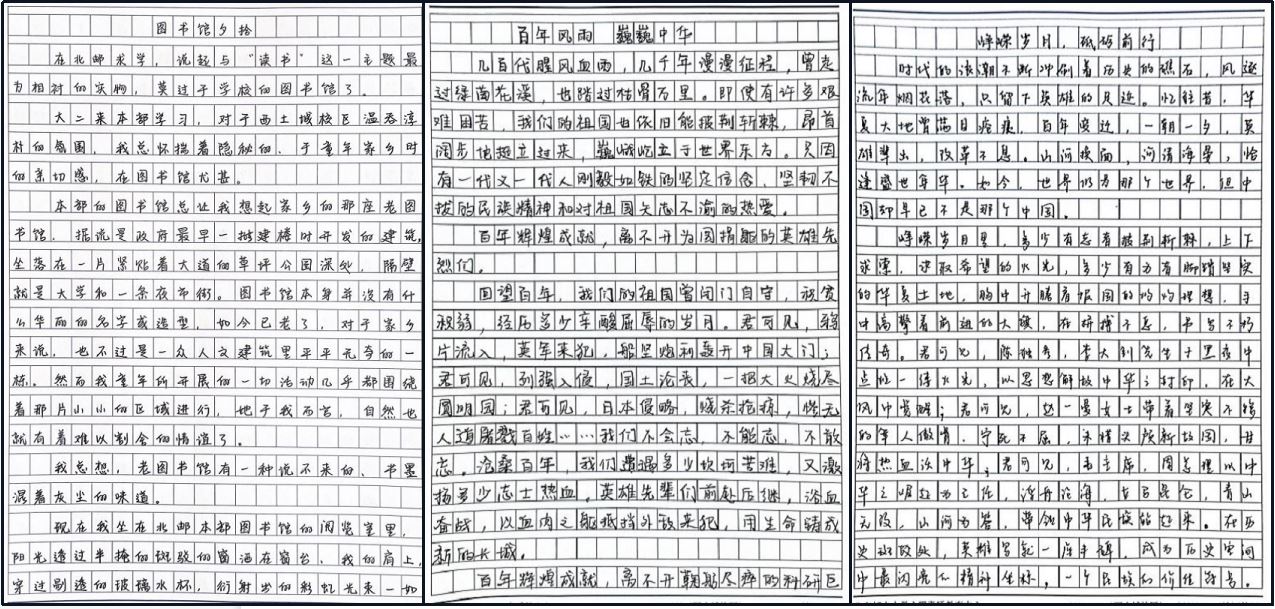 图书馆夕拾
在北邮求学，说起与“读书”这一主题最
为相衬的实物，莫过于学校的图书馆了。
大二来本部学习，对于西土城校区温吞淳
朴的氛围，我总怀揣着隐秘的、于童年家乡时
的亲切感，在图书馆尤甚。
本部的图书馆总让我想起家乡的那座老图
书馆。据说是政府最早一批建楼时开发的建筑，
坐落在一片紧贴着大道的草评公园深处，隔壁
就是大学和一条夜市街。图书馆本身并没有什
么华丽的名字或造型，如今已老了，对于家乡
来说，也不过是一众人文建筑里平平无奇的一
栋。然而我童年所开展的一切活动几乎都围绕
着那片小小的区域进行，她于我而言，自然也
就有着难以割舍的情谊了。
我总想，老图书馆有一种说不来的、书墨
混着灰尘的味道。
现在我坐在北邮本部图书馆的阅览室里，
阳光透过半掩的斑驳的窗洒在窗台、我的肩上，
穿过剔透的玻璃水杯，衍射出的彩虹光束一如
百年风雨 巍巍中华
几百代腥风血雨，几千年漫漫征程，曾走
过绿茵花溪，也踏过枯骨万里。即使有许多艰
难困苦，我们的祖国也依旧能披荆斩棘，昂首
阔步地挺立过来，巍峨屹立于世界东方。只因
有一代又一代人刚毅如铁的坚定信念、坚韧不
拔的民族精神和对祖国矢志不渝的热爱。
百年辉煌成就，离不开为国捐躯的英雄先
烈们。
回望百年，我们的祖国曾闭门自守，积贫
积弱，经历多少辛酸屈辱的岁月。君可见，鸦
片流入，英军来犯，船坚炮利轰开中国大门；
君可见，列强入侵，国土沦丧，一把大火烧尽
圆明园；君可见，日本侵略，烧杀抢掠，惨无
人道屠戮百姓……我们不会忘，不能忘，不敢
忘。沧桑百年，我们遭遇多少坎坷苦难，又激
扬多少志士热血。英雄先辈们前赴后继，浴血
奋战，以血肉之躯抵挡外敌来犯，用生命铸成
新的长城。
百年辉煌成就，离不开鞠躬尽瘁的科研巨
峥嵘岁月，砥砺前行
时代的浪潮不断冲刷着历史的礁石，风逐
流年烟花落，只留下英雄的足迹。忆往昔，华
夏大地曾满目疮痍，百年变迁，一朝一夕，英
雄辈出，改革不息。山河换面，河清海晏，恰
逢盛世年华。如今，世界仍为那个世界，但中
国却早已不是那个中国。
峥嵘岁月里，多少有志者披荆斩棘，上下
求索，求取希望的火光，多少有为者脚踏坚实
的华夏土地，胸中开腾着报国的灼灼理想，手
中高擎着前进的大旗，在拼搏不息，书写不朽
传奇。君可见，陈独秀，李大钊先生于黑夜中
点燃一缕火光，以思想解放中华之封印，在大
风中觉醒；君可见，赵一曼女士带着坚实不移
的军人傲骨，宁死不屈，
将热血沃中华；君可见，毛主席，周总理以中
华之崛起为己任，
无改，山河为答，带领中华民族站起来。在历
史斑驳处，英雄写就一座丰碑，成为历史空间
中最闪亮的精神坐标，一个民族的价值符号。